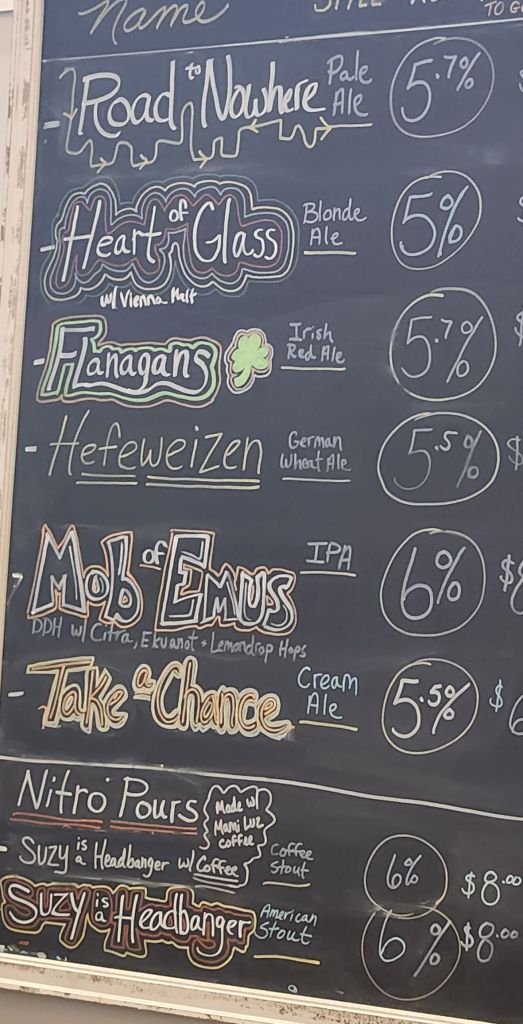 Name
TO GO
- Road to Nowhere Pale Ale 5.7%
- Heart of Glass Blonde Ale 5%
w/ Vienna Malt
- Flanagans Irish Red Ale 5.7%
- Hefeweizen German Wheat Ale 5.5% $
Mob of Emus IPA 6% $
DDH w/ Citra, Ekuanot + Lemondrop Hops
- Take a Chance Cream Ale 5.5% $
Nitro Pours
Made w/ Mami Luz Coffee
- Suzy is a Headbanger w/ Coffee Coffee Stout 6% $8.00
Suzy is a Headbanger American Stout 6% $8.00